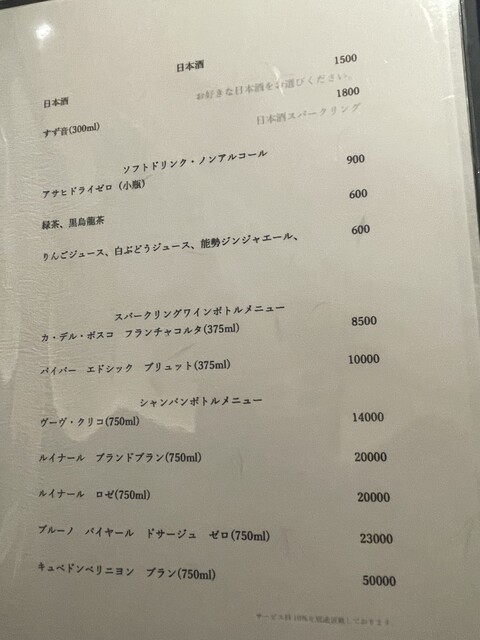 日本酒
日本酒 1500
お好きな日本酒をお選びください。
すず音(300ml) 1800
日本酒スパークリング
ソフトドリンク・ノンアルコール
アサヒドライゼロ（小瓶） 900
緑茶、黒烏龍茶 600
りんごジュース、白ぶどうジュース、能勢ジンジャエール、 600
スパークリングワインボトルメニュー
カ・デル・ボスコ フランチャコルタ(375ml) 8500
パイパー エドシック ブリュット(375ml) 10000
シャンパンボトルメニュー
ヴーヴ・クリコ(750ml) 14000
ルイナール ブランドブラン(750ml) 20000
ルイナール ロゼ(750ml) 20000
ブルーノ パイヤール ドサージュ ゼロ(750ml) 23000
キュベドンペリニヨン ブラン(750ml) 50000
サービス料10%を別途頂戴しております。